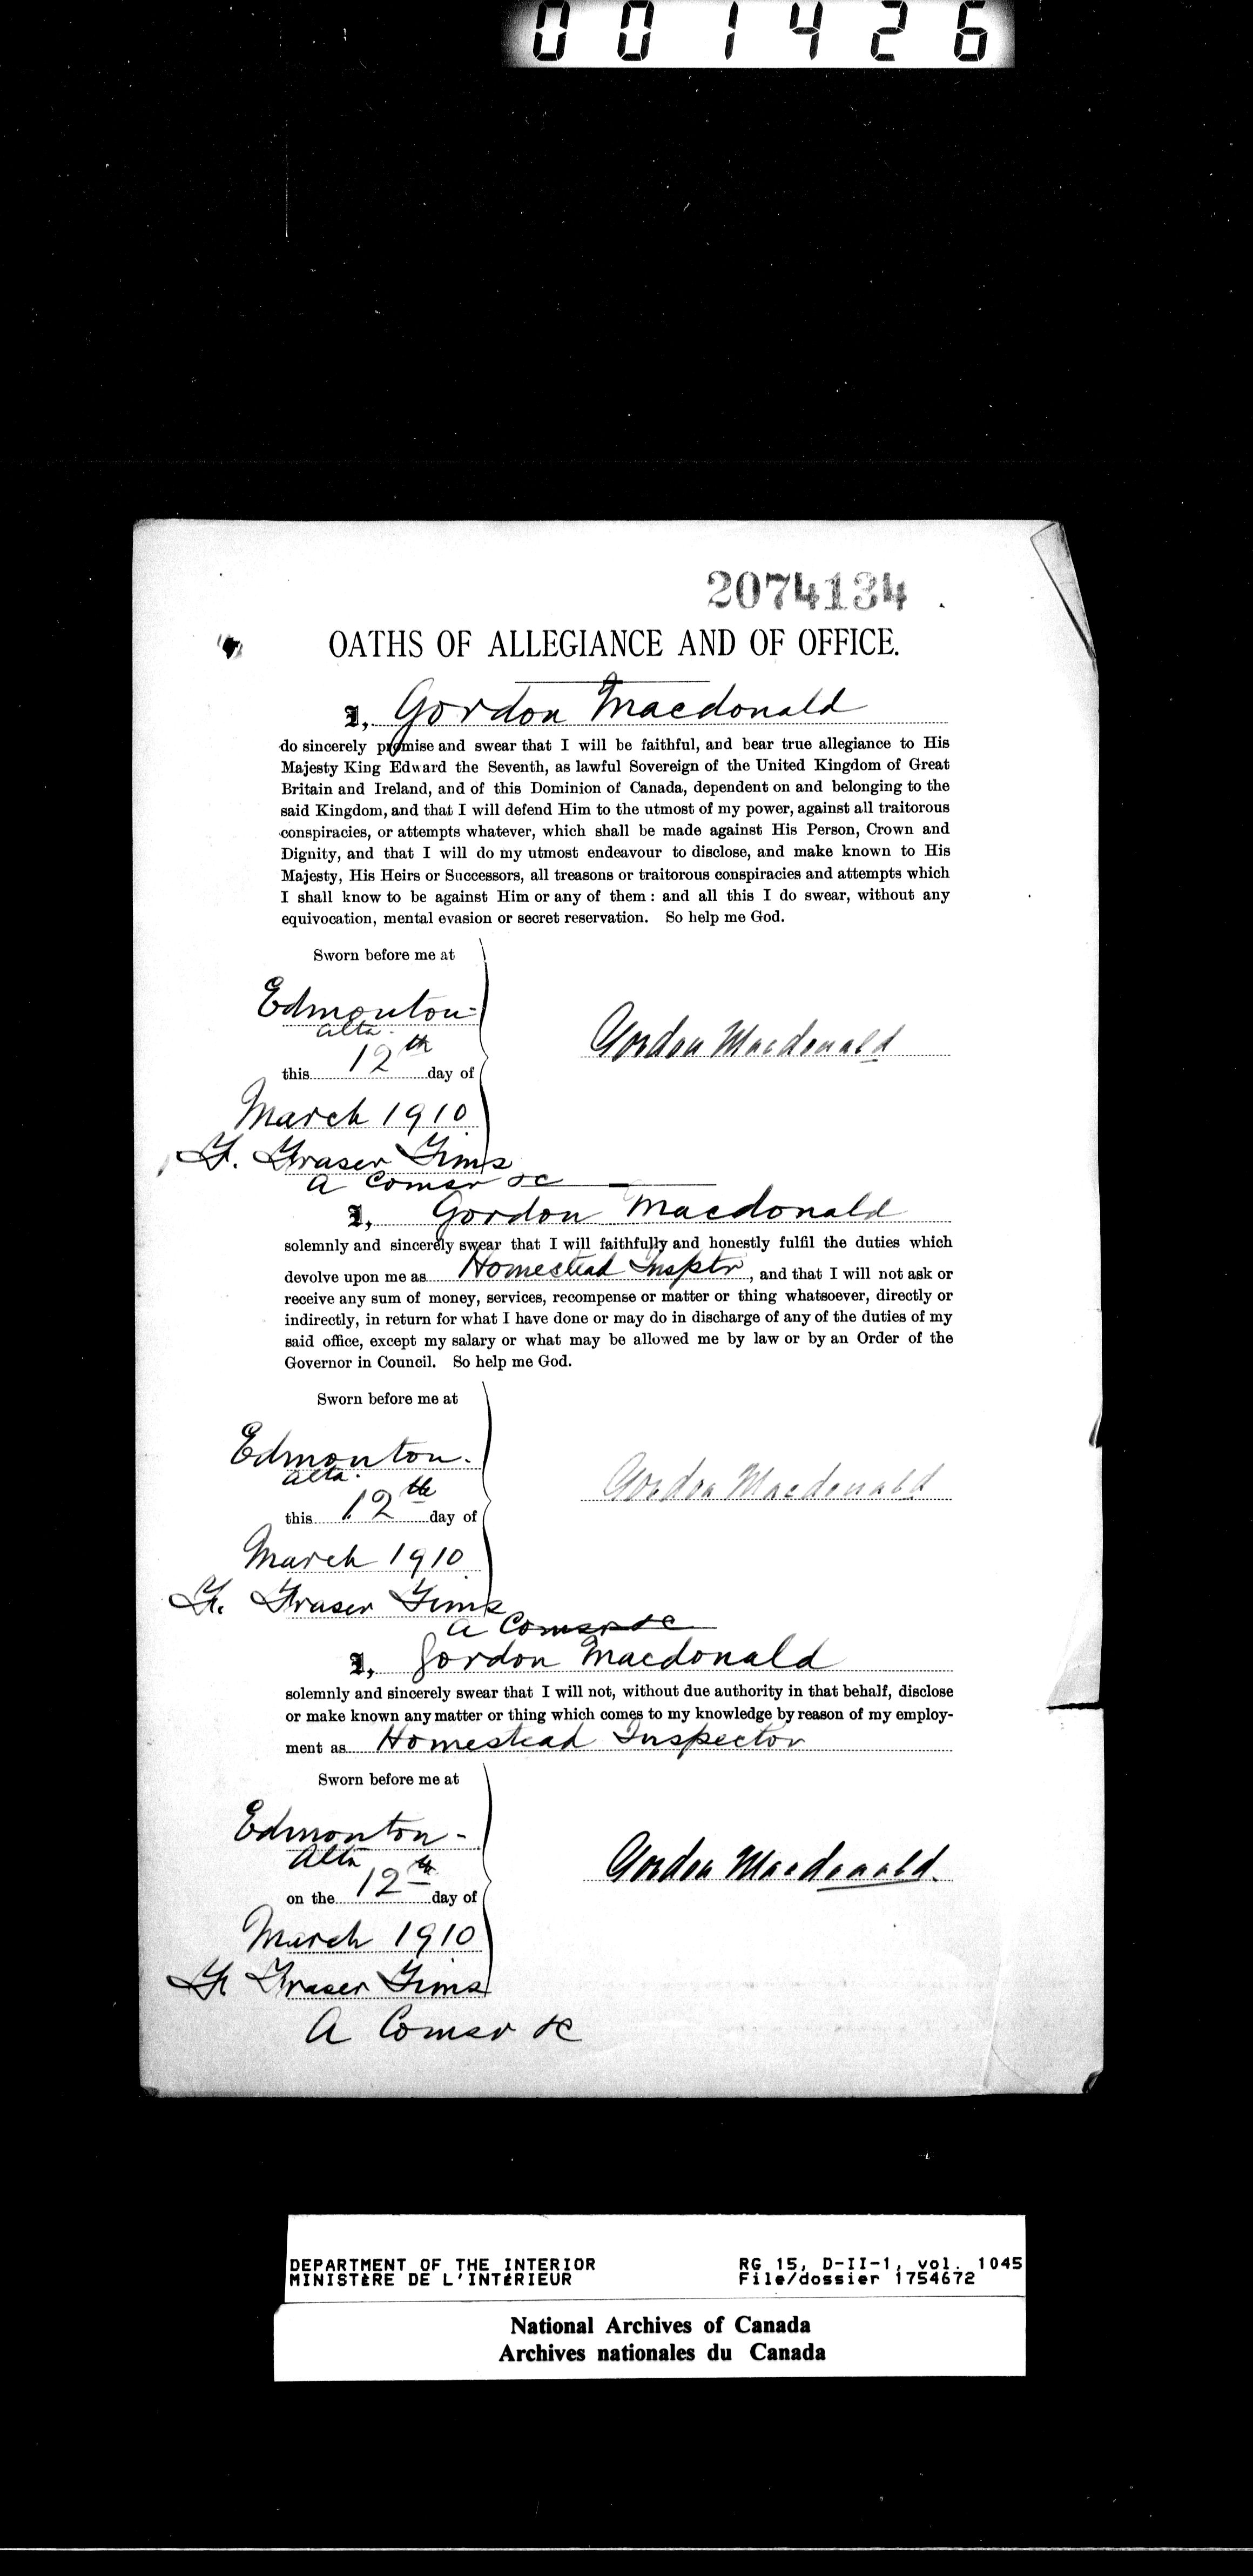 001426
2074134
OATHS OF ALLEGIANCE AND OF OFFICE.
I, Gordon Macdonald
do sincerely promise and swear that I will be faithful, and bear true allegiance to His
Majesty King Edward the Seventh, as lawful Sovereign of the United Kingdom of Great
Britain and Ireland, and of this Dominion of Canada, dependent on and belonging to the
said Kingdom, and that I will defend Him to the utmost of my power, against all traitorous
conspiracies, or attempts whatever, which shall be made against His Person, Crown and
Dignity, and that I will do my utmost endeavour to disclose, and make known to His
Majesty, His Heirs or Successors, all treasons or traitorous conspiracies and attempts which
I shall know to be against Him or any of them : and all this I do swear, without any
equivocation, mental evasion or secret reservation. So help me God.
Sworn before me at
Edmonton-
Alta.
this 12th day of
Gordon Macdonald
March 1910
Fraser Tims
A Comsr &c
I, Gordon Macdonald
solemnly and sincerely swear that I will faithfully and honestly fulfil the duties which
devolve upon me as Homestead Insptr, and that I will not ask or
receive any sum of money, services, recompense or matter or thing whatsoever, directly or
indirectly, in return for what I have done or may do in discharge of any of the duties of my
said office, except my salary or what may be allowed me by law or by an Order of the
Governor in Council. So help me God.
Sworn before me at
Edmonton.
Alta.
this 12th day of
Gordon Macdonald
March 1910
Fraser Tims
A Comsr &c
I, Gordon Macdonald
solemnly and sincerely swear that I will not, without due authority in that behalf, disclose
or make known any matter or thing which comes to my knowledge by reason of my employ-
ment as Homestead Inspector
Sworn before me at
Edmonton-
Alta
on the 12th day of
Gordon Macdonald.
March 1910
Fraser Tims
A Comsr &c
DEPARTMENT OF THE INTERIOR RG 15, D-II-1, vol. 1045
MINISTÈRE DE L'INTÉRIEUR File/dossier 1754672
National Archives of Canada
Archives nationales du Canada